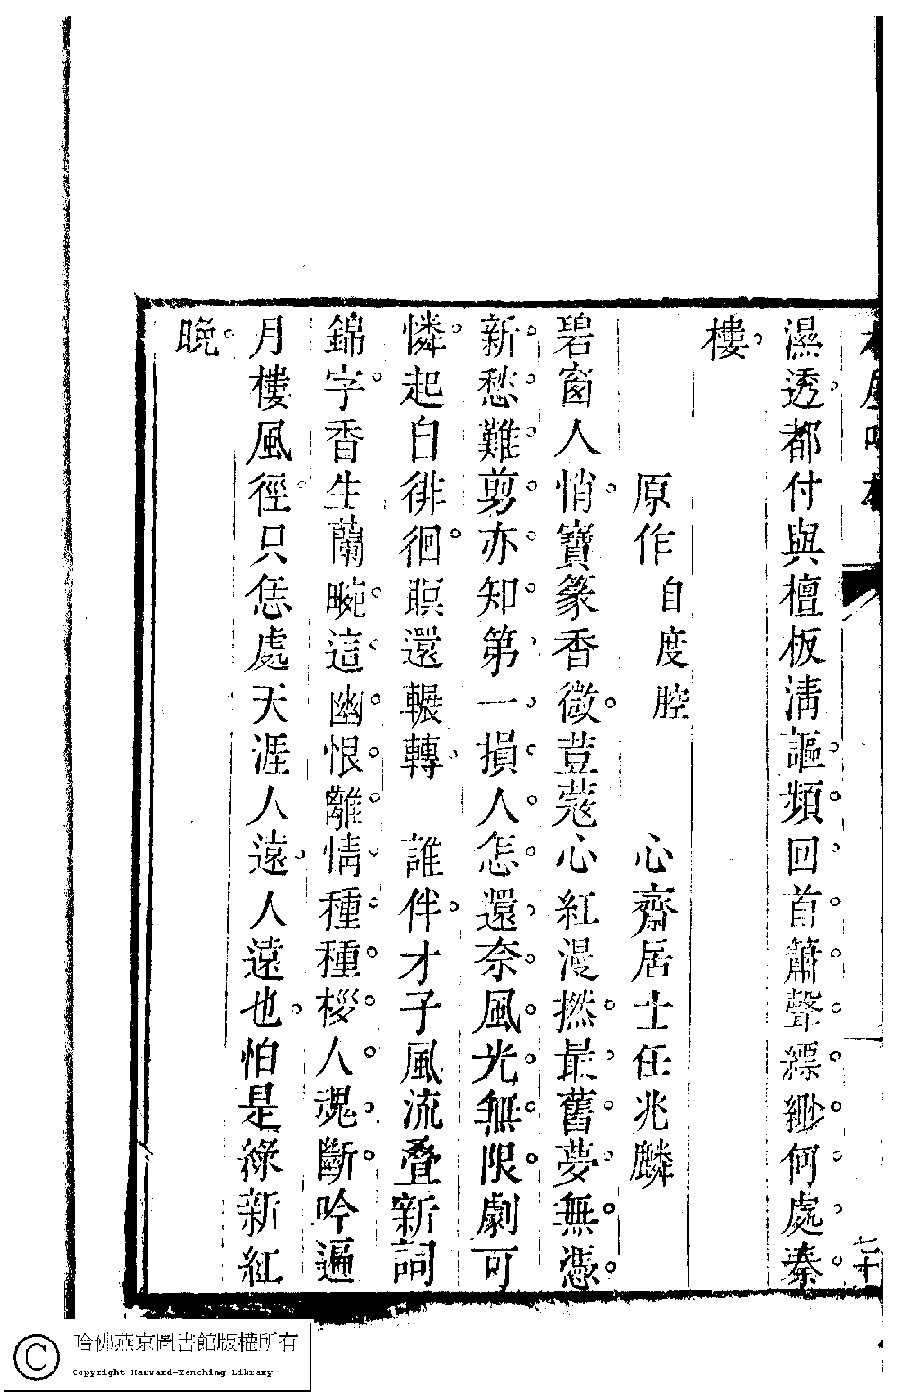 濕透都付與檀板淸謳頻回首簫聲縹緲何處秦
樓
原作 自度腔 心齋居士任兆麟
碧窗人悄寶篆香微荳蔻心紅漫撚最舊夢無憑
新愁難剪亦知第一損人怎還奈風光無限劇可
憐起自徘徊眠還輾轉 誰伴才子風流叠新詞
錦字香生蘭畹這幽恨離情種種桫人魂斷吟遍
月樓風徑只恁處天涯人遠人遠也怕是綠新紅
晚
哈佛燕京圖書館版權所有
Copyright Harvard-Yenching Library